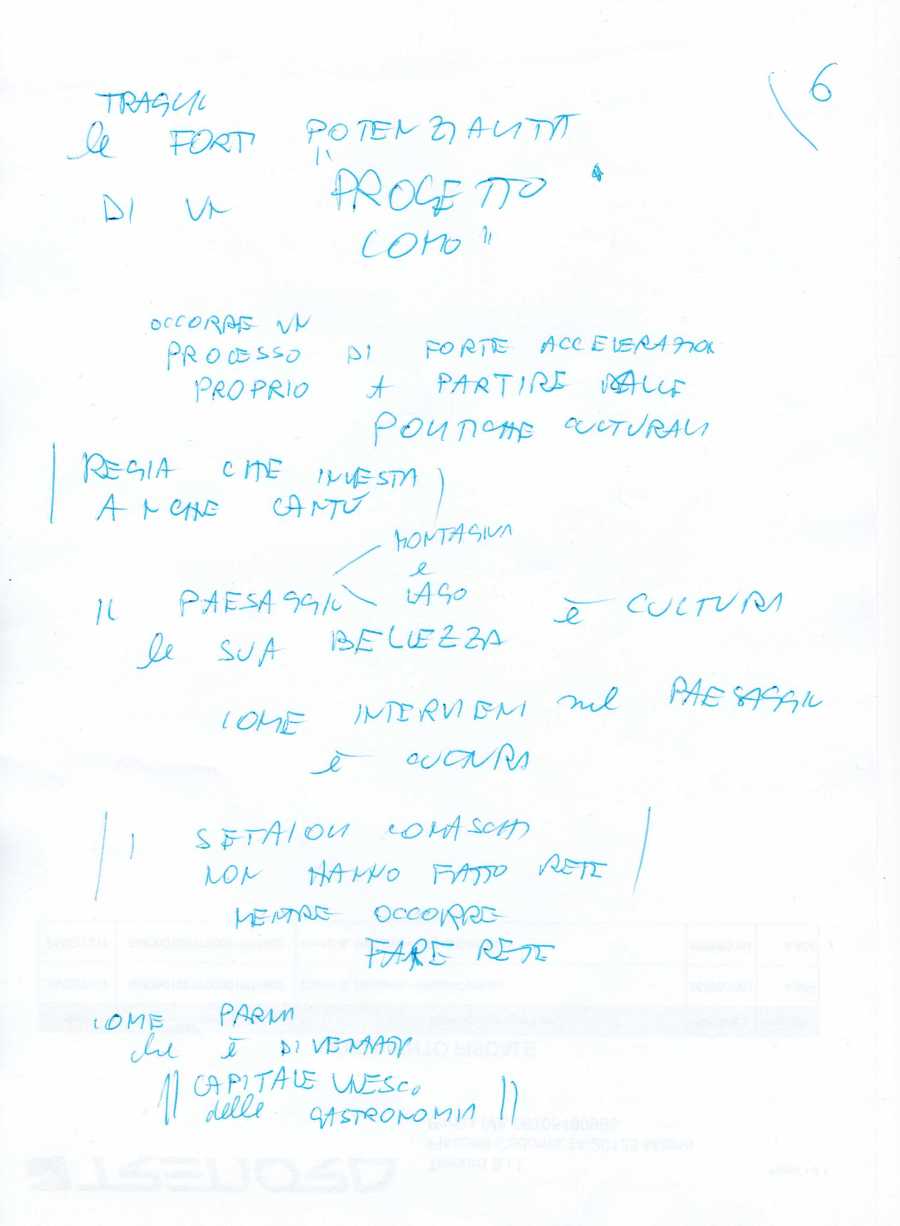 6
le FORTI POTENZIALITÀ
DI UN "PROGETTO
COMO"
OCCORRE UN
PROCESSO DI FORTE ACCELERAZION
PROPRIO A PARTIRE DALLE
POLITICHE CULTURALI
REGIA CHE INVESTA
ANCHE CANTÙ
MONTAGNA
e
IL PAESAGGIO LAGO è CULTURA
le SUA BELLEZZA
COME INTERVIENI sul PAESAGGIO
è CULTURA
I SETAIOLI COMASCHI
NON HANNO FATTO RETE
MENTRE OCCORRE
FARE RETE
COME PARMA
che è DIVENTATA
CAPITALE UNESCO
delle GASTRONOMIA
TRENORD